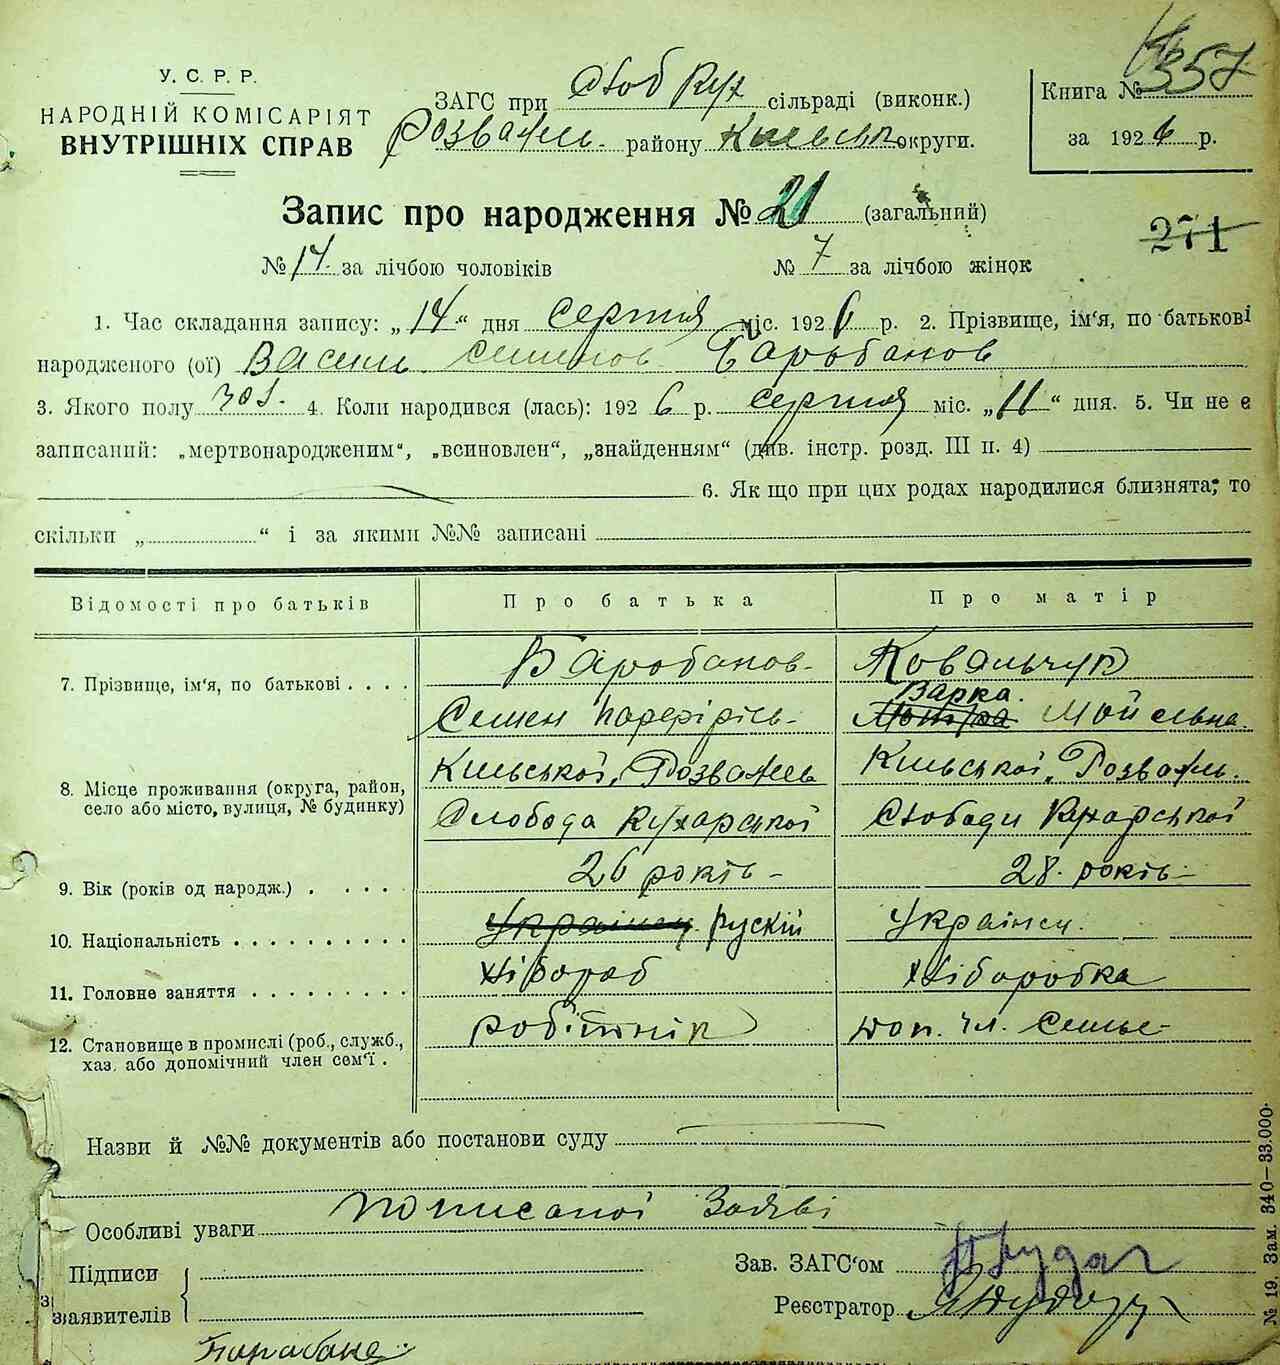 357
У. С. Р. Р.
НАРОДНІЙ КОМІСАРІЯТ
ВНУТРІШНІХ СПРАВ
ЗАГС при Слоб Кух сільраді (виконк.)
Розважів. району Київськ округи.
Книга №
за 1926 р.
Запис про народження № 21 (загальний)
271
№ 14. за лічбою чоловіків № 7 за лічбою жінок
1. Час складання запису: „14“ дня серпня міс. 1926 р. 2. Прізвище, ім'я, по батькові
народженого (ої) Василь Семенов Баробанов
3. Якого полу чол. 4. Коли народився (лась): 1926 р. серпня міс. „11“ дня. 5. Чи не є
записаний: „мертвонародженим“, „всиновлен“, „знайденням“ (див. інстр. розд. III п. 4)
6. Як що при цих родах народилися близнята, то
скільки „ “ і за якими №№ записані
Відомості про батьків Про батька Про матір
7. Прізвище, ім'я, по батькові . . . . Баробанов- Ковальчук
Варка.
Семен Порфірівь- Мотря Мойсевна.
8. Місце проживання (округа, район, село або місто, вулиця, № будинку) Киівської, Розважів Киівської, Розважів.
Слобода Кухарської Слободи Кухарської
9. Вік (років од народж.) . . . . . 26 років - 28. років -
10. Національність . . . . . . . . . . Украінец рускій Украінец.
11. Головне заняття . . . . . . . . . Хлібороб Хліборобка
12. Становище в промислі (роб., служб., хаз. або допомічний член сем'ї . робітнік доп. чл. семье-
Назви й №№ документів або постанови суду
Особливі уваги по писаної Заяві
Підписи
заявителів
Зав. ЗАГС'ом
Реєстратор
№ 19. Зам. 340—33.000.